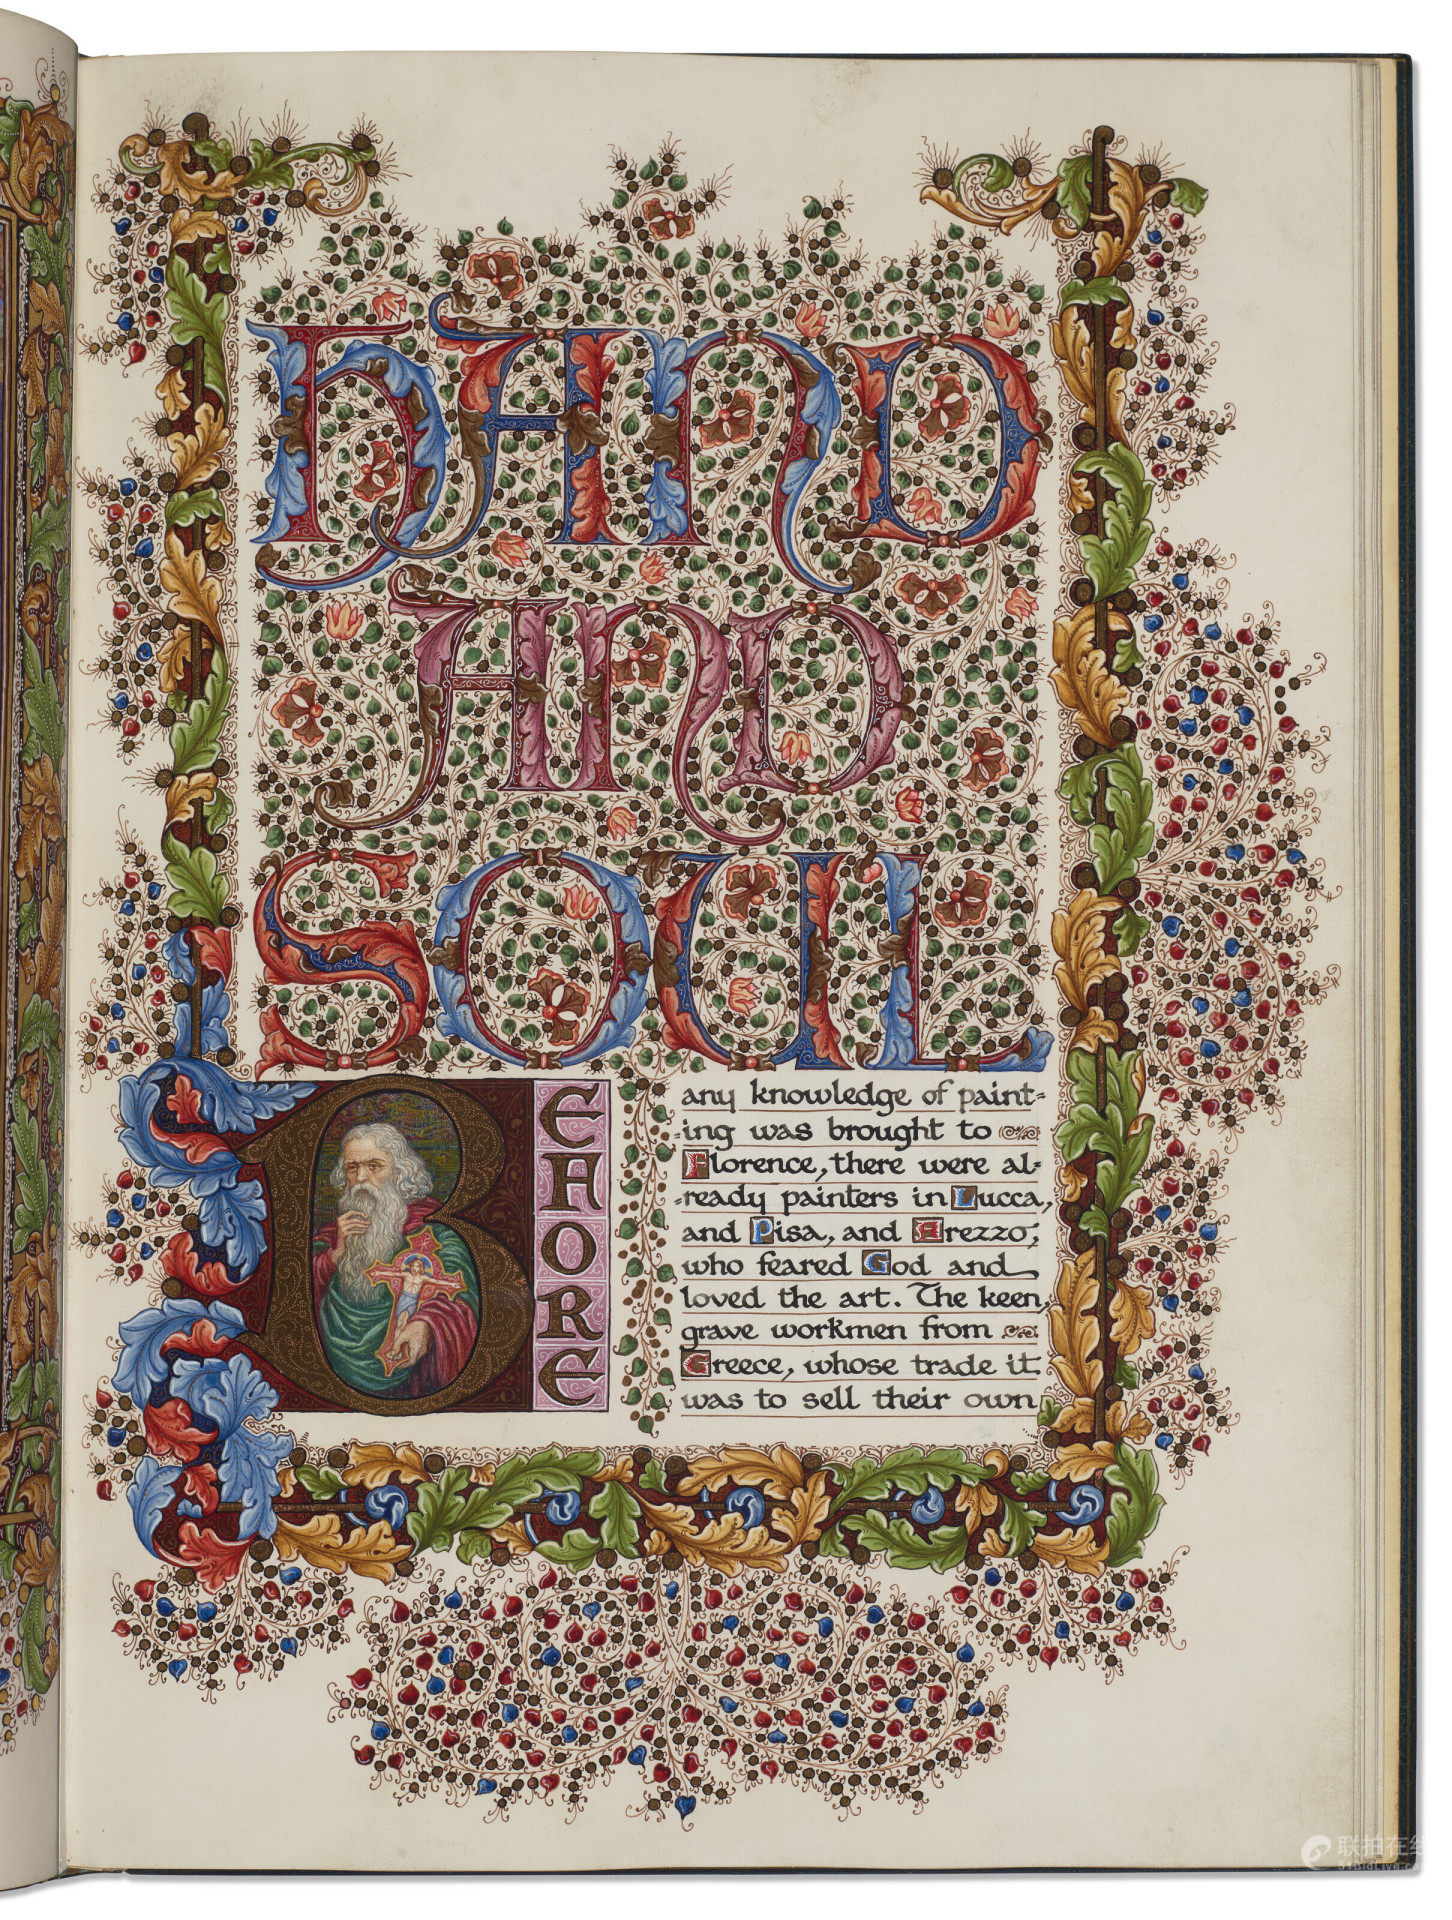 HAND
AND
SOUL
BEHORE
any knowledge of paint-
-ing was brought to
Florence, there were al-
-ready painters in Lucca,
and Pisa, and Arezzo,
who feared God and
loved the art. The keen,
grave workmen from
Greece, whose trade it
was to sell their own
联拍在线
51bidLive.com